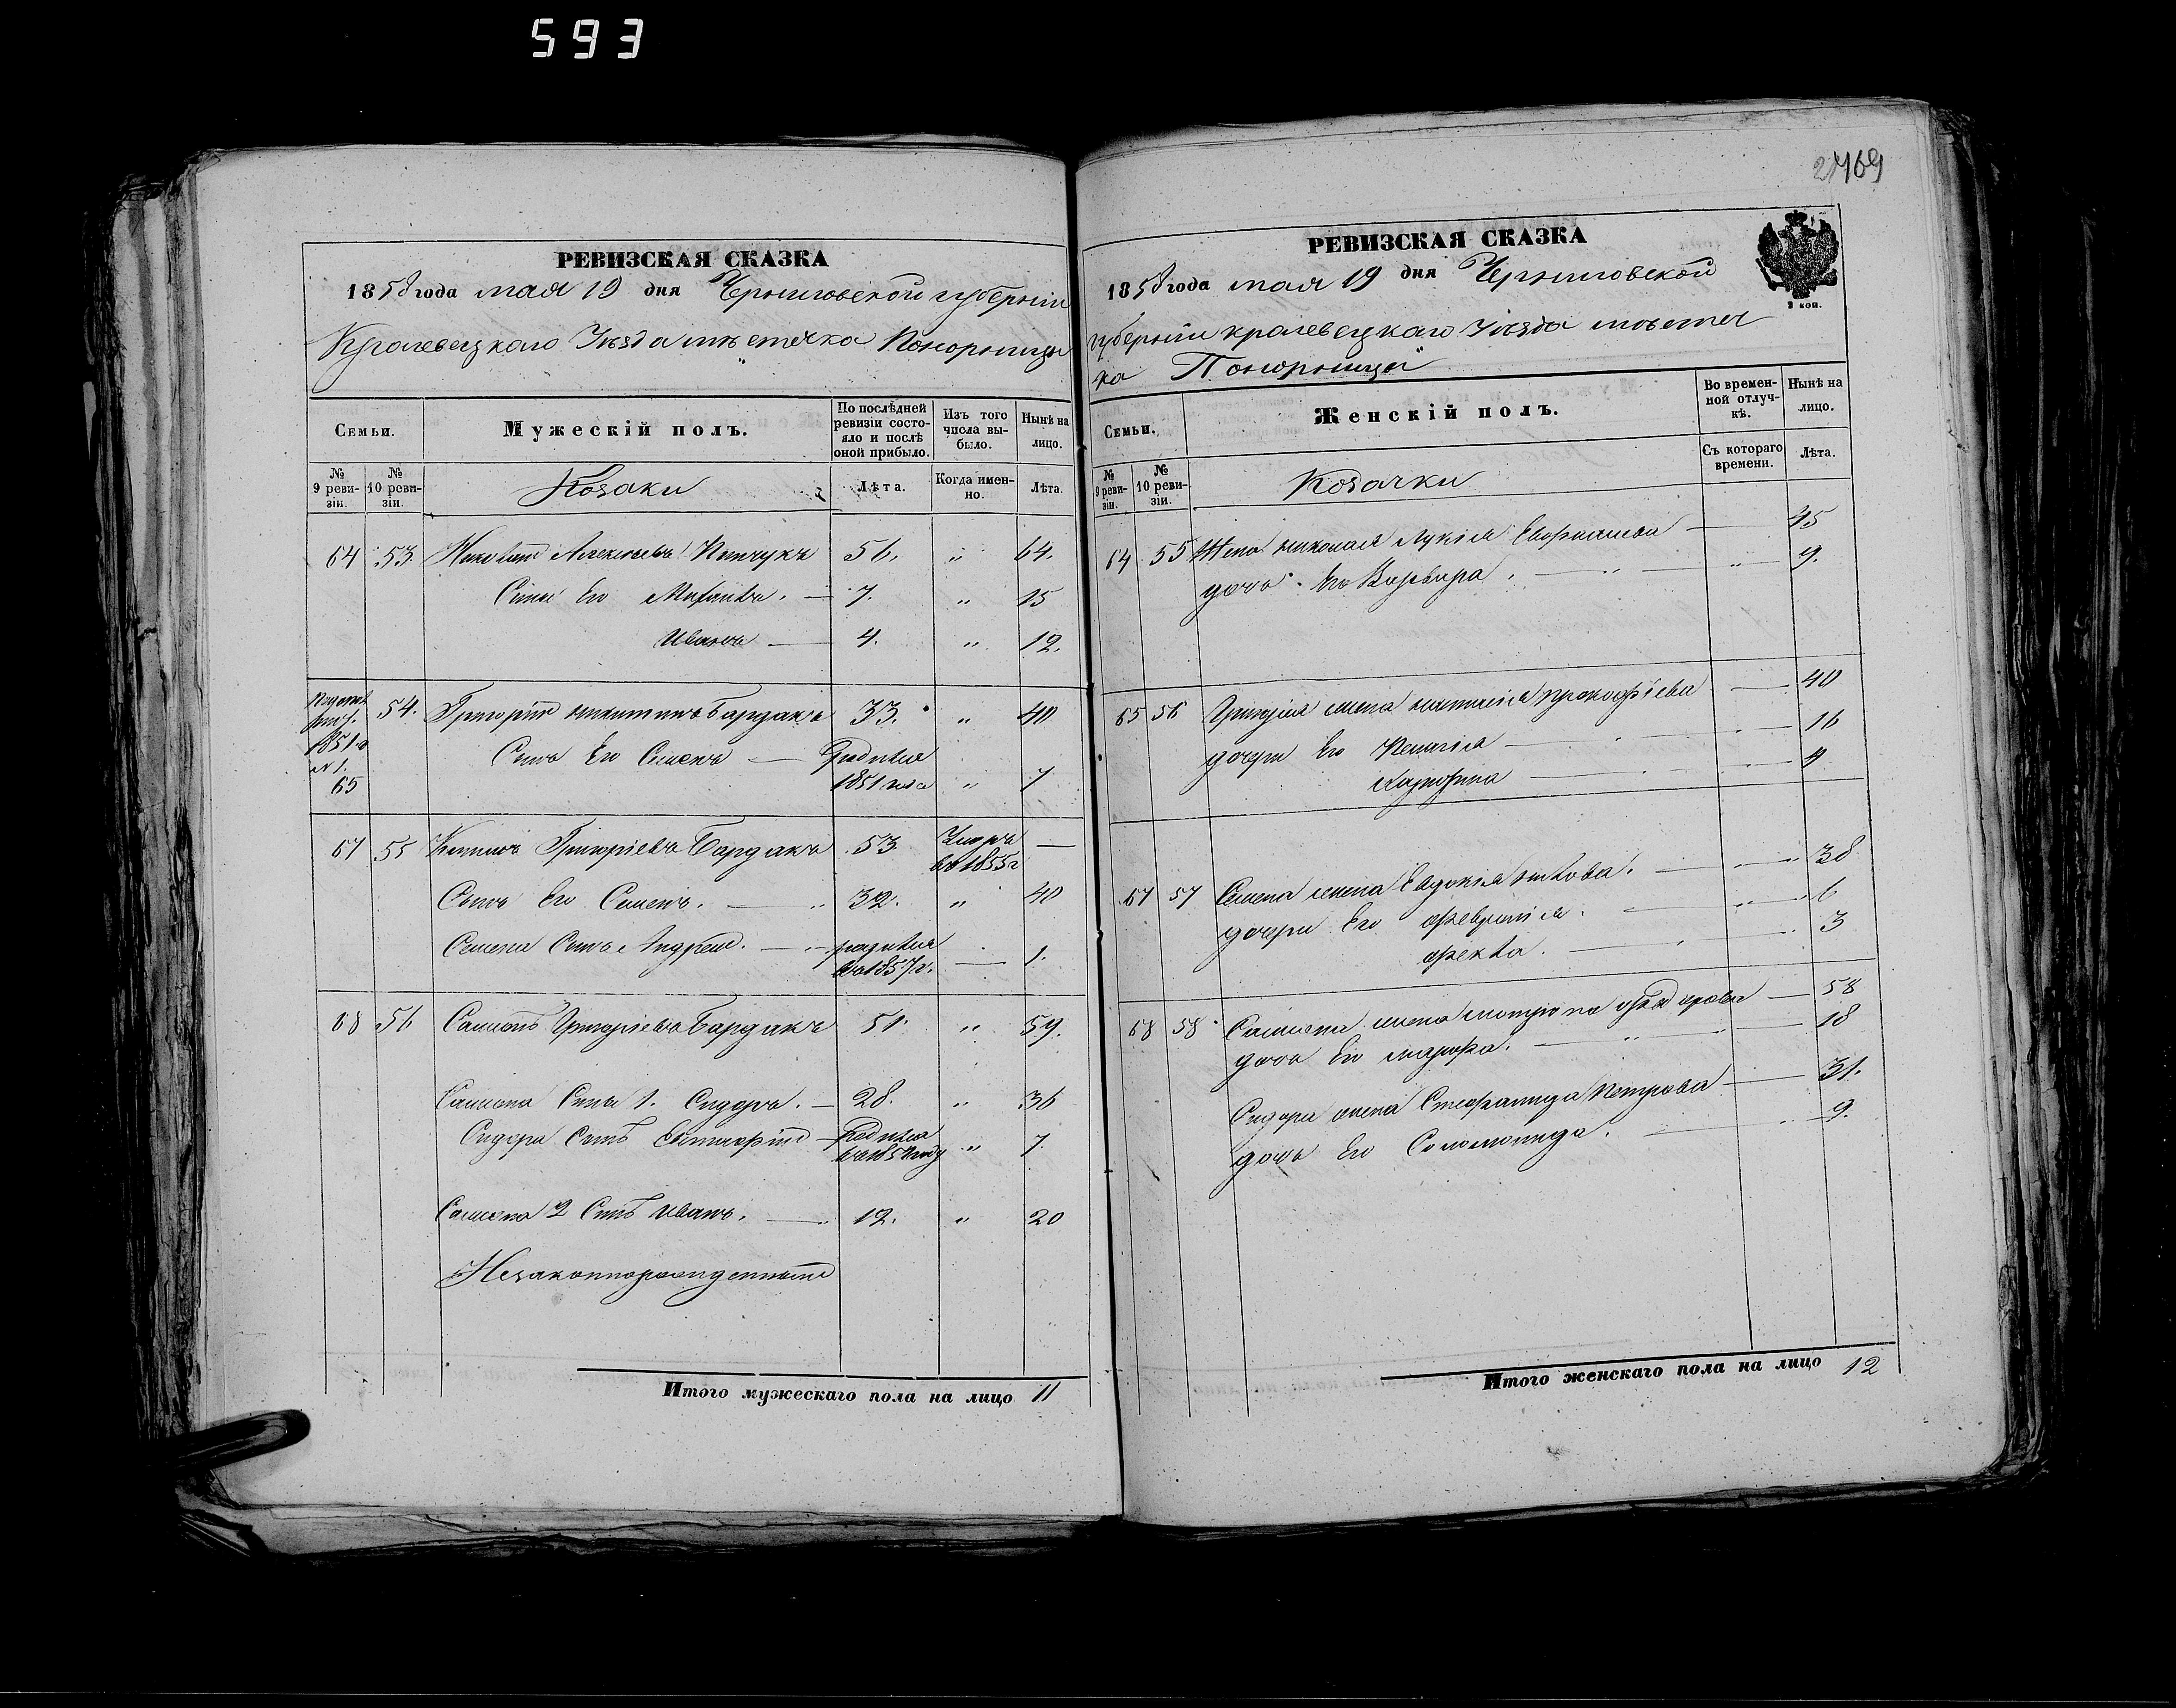 593
РЕВИЗСКАЯ СКАЗКА
1858 года мая 19 дня Черниговской губернiи
Кролевецкаго Уѣзда мѣстечка Понорницы
Семьи.
Мужескій полъ.
По послѣдней ревизіи состояло и послѣ оной прибыло.
Изъ того числа выбыло.
Нынѣ на лицо.
№ 9 ревизіи.
№ 10 ревизіи.
Козаки
Лѣта.
Когда именно.
Лѣта.
64 53 Алексѣевъ 56. " 64.
Сыны Его — 7. " 15
Иванъ — 4. " 12.
1851 № 1. 65
54. Григорій Никитинъ Бардакъ 33. " 40
Сынъ Его Семенъ — родился 1851 года " 7
67 55 Григоріевъ Бардакъ 53 Умеръ въ 1855 г —
Сынъ Его Семенъ. — 32. " 40
Семена Сынъ Андрей. — родился въ 1857 г. — 1.
68 56 Самсонъ Григоріевъ Бардакъ 51. " 59.
Самсона Сыны 1. Сидоръ. — 28. " 36
Сидора Сынъ — родился " 7
Самсона 2 Сынъ Иванъ. — 12. " 20
Незаконнорожденный
Итого мужескаго пола на лицо 11
2469
РЕВИЗСКАЯ СКАЗКА
1858 года мая 19 дня Черниговской
2 коп.
губернiи кролевецкаго Уѣзда мѣстеч
ка Понорницы
Семьи.
Женскій полъ.
Во временной отлучкѣ.
Нынѣ на лицо.
№ 9 ревизіи.
№ 10 ревизіи.
Козачки
Съ котораго времени.
Лѣта.
64 55 Жена николая — 45
дочь Его Варвара. — " 9.
65 56 Григорія жена прокофіева — 40
дочери Его — 16
— 4
67 57 Семена жена Евдокія — 38
дочери Его февронія. — 6
фекла. — 3
68 58 Самсона жена мотрона — 58
дочь Его марфа. — 18
Сидора жена Стефанида Петрова — 31.
дочь Его Соломонида. — 9.
Итого женскаго пола на лицо 12